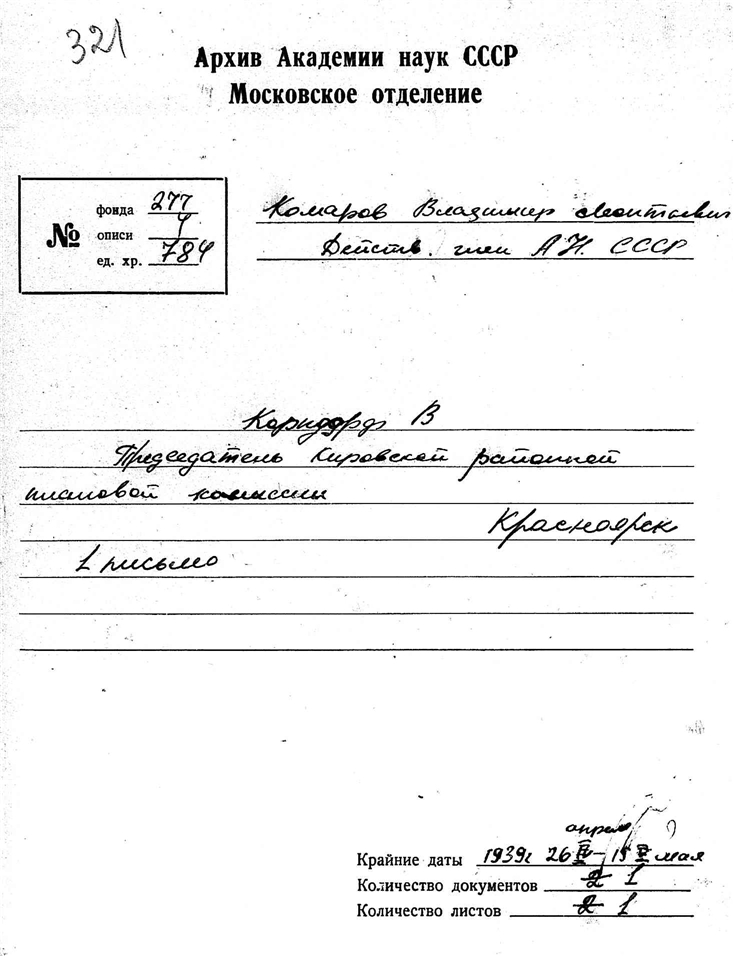 321
Архив Академии наук СССР
Московское отделение
№
фонда 277
описи 4
ед. хр. 784
Комаров Владимир Леонтьевич
Действ. член АН. СССР
В
Председатель Кировской районной
плановой комиссии
Красноярск
1 письмо
апрель
Крайние даты 1939г 26 IV – 15 V мая
Количество документов 2 1
Количество листов 2 1